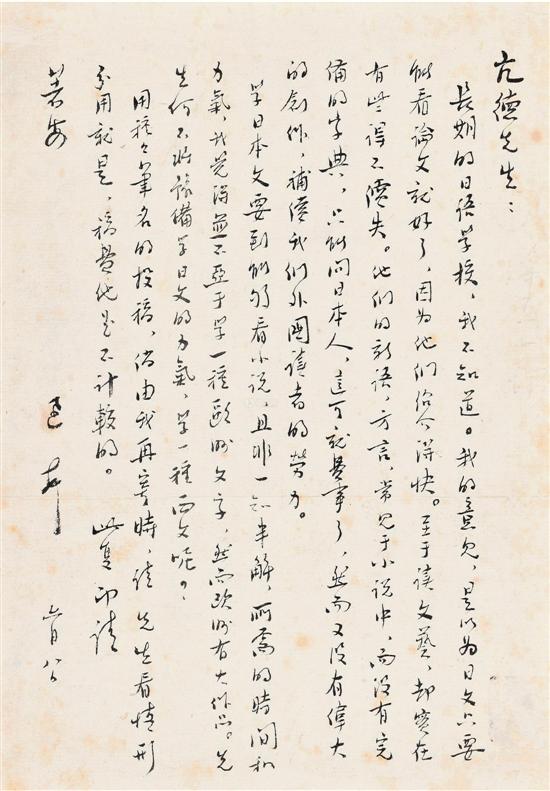 亢德先生：
長期的日语學校，我不知道。我的意見，是以为日文只要
能看論文就好了，因为他们绍介得快。至于读文藝，却实在
有些得不償失。他们的新语，方言，常見于小说中，而没有完
備的字典，只能问日本人，这可就費事了，然而又没有偉大
的創作，補償我们外國读者的劳力。
学日本文要到能夠看小说，且非一知半解，所需的時间和
力氣，我觉得並不亞于学一種歐洲文字，然而欧洲有大作品。先
生何不將豫備学日文的力氣，学一種西文呢？
用種々筆名的投稿，倘由我再寄時，请 先生看情形
分用就是，稿費他是不計較的。 此复即請
著安
迅 頓首 六月八日